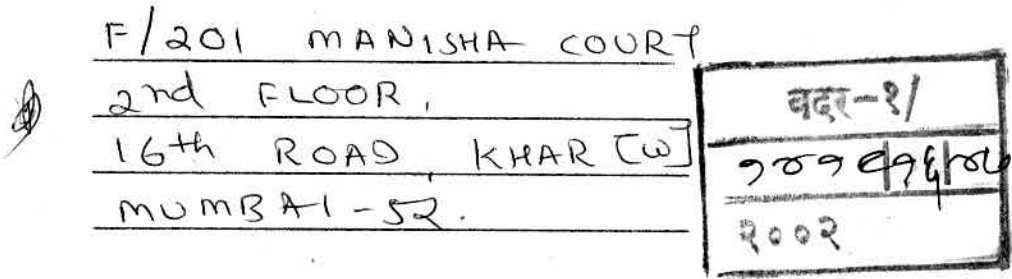 F/201 MANISHA COURT
2nd FLOOR,
16th ROAD, KHAR [W]
MUMBAI-52.
बदर-१/
२००२